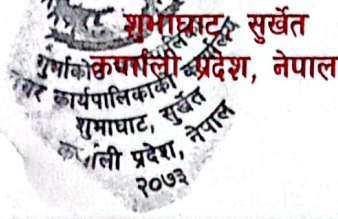 शुभाघाट, सुर्खेत
कर्णाली प्रदेश, नेपाल
गुर्भाको
नगर कार्यपालिकाको
शुभाघाट, सुर्खेत
कर्णाली प्रदेश, नेपाल
२०७३